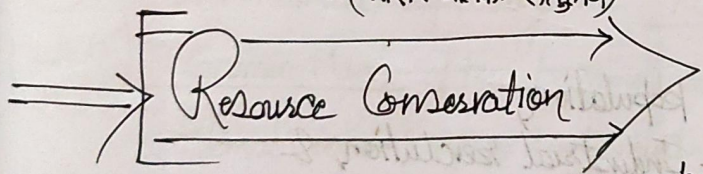 Resource Conservation